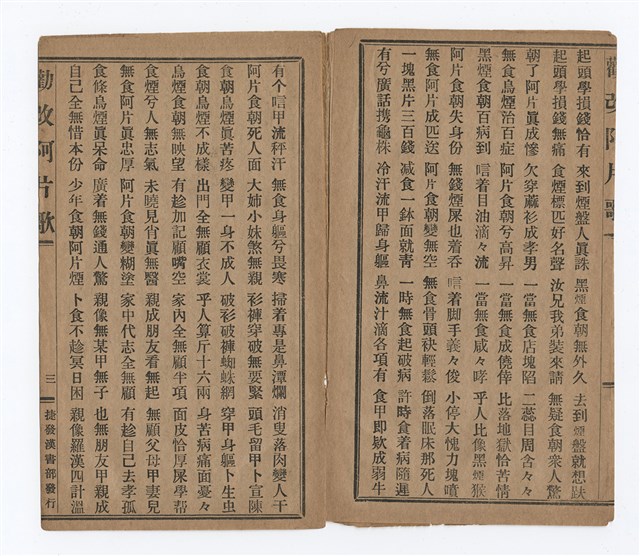 勸改阿片歌
起頭學損錢恰有 來到煙盤人眞誅 黑煙食朝無外久 去到煙盤就想趺
起頭學損錢無痛 食煙標匹好名聲 汝兄我弟裝來請 無疑食朝衆人驚
朝了阿片眞成慘 欠穿蔴衫成孝男 一當無食店塊陷 二蕊目周含々々
無食烏煙治百症 阿片食朝兮高昇 一當無食成僥倖 比落地獄恰苦情
黑煙食朝百病到 唁着目油滴々流 一當無食咸々哮 乎人比像黑煙猴
阿片食朝失身份 無錢煙屎也着吞 唁着脚手義々俊 小停大愧力塊噴
無食阿片成匹送 阿片食朝變無空 無食骨頭袂輕鬆 倒落眠床那死人
一塊黑片三百錢 減食一鉢面就靑 一時無食起破病 許時食着病隨遲
有兮廣話携龜株 冷汗流甲歸身軀 鼻流汁滴各項有 食甲即歎成弱牛
有个唁甲流秤汗 無食身軀兮畏寒 掃着專是鼻潭爛 消叟落肉變人干
阿片食朝死人面 大姉小妹煞無親 彩褲穿破無要緊 頭毛留甲卜宣陳
食朝烏煙眞苦疼 變甲一身不成人 破衫破褲蜘蛛網 穿甲身軀卜生虫
食朝烏煙不成樣 出門全無顧衣裳 乎人算斤十六兩 身苦病痛面憂々
烏煙食朝無映望 有趁加記顧嘴空 家內全無顧半項 面皮恰厚屎學幇
食煙兮人無志氣 未曉見肖眞無醫 親成朋友看無起 無顧父母甲妻兒
無食阿片眞忠厚 阿片食朝變糊塗 家中代志全無顧 有趁自己去孝孤
食條烏煙眞呆命 廣着無錢通人驚 親像無某甲無子 也無朋友甲親成
自己全無惜本份 少年食朝阿片煙 卜食不趁冥日困 親像羅漢四計溫
勸改阿片歌 三 捷發漢書部發行